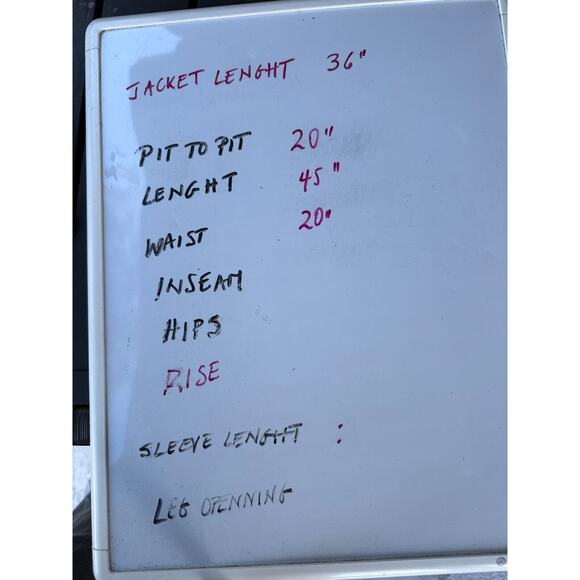 JACKET LENGHT 36"
PIT TO PIT 20"
LENGHT 45"
WAIST 20"
INSEAM
HIPS
RISE
SLEEVE LENGHT :
LEG OPENNING